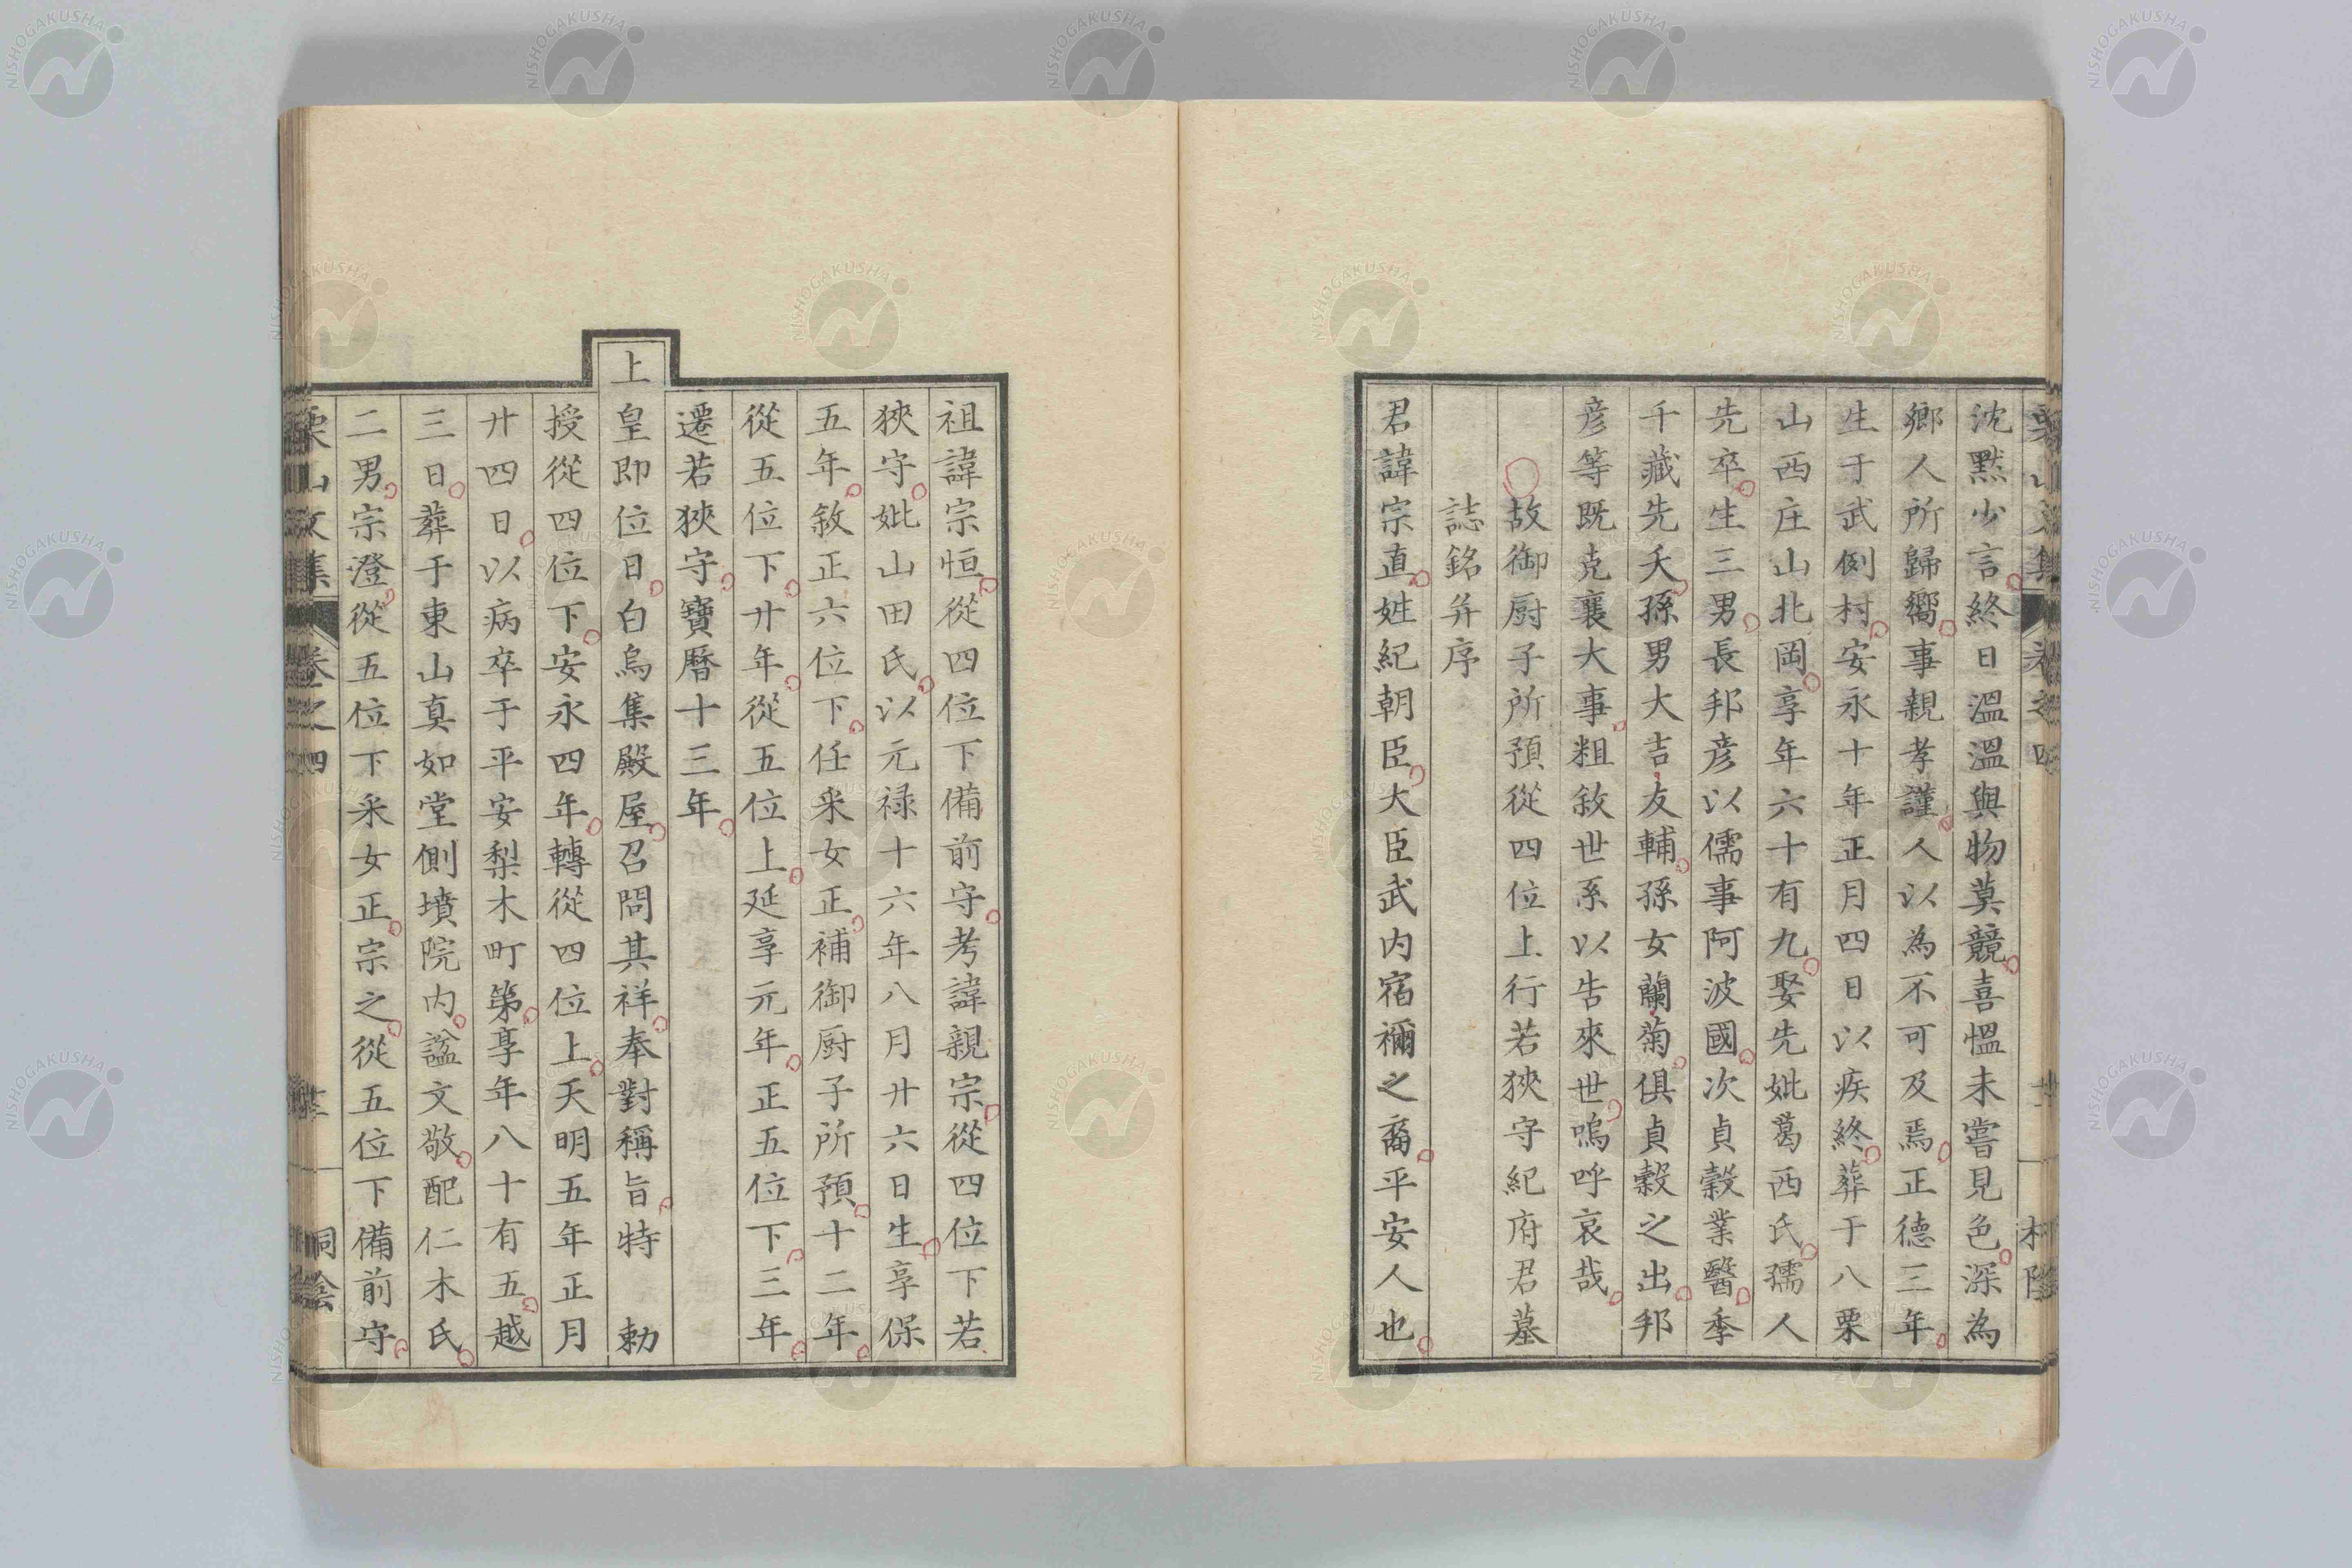 沈默少言終日溫溫與物莫競喜慍未嘗見色深為
鄉人所歸嚮事親孝謹人以為不可及焉正德三年
生于武例村安永十年正月四日以疾終葬于八栗
山西庄山北岡享年六十有九娶先妣葛西氏孺人
先卒生三男長邦彦以儒事阿波國次貞穀業醫季
千藏先夭孫男大吉友輔孫女蘭菊俱貞穀之出邦
彦等既克襄大事粗敘世系以告來世嗚呼哀哉
故御厨子所預從四位上行若狹守紀府君墓
誌銘并序
君諱宗直姓紀朝臣大臣武内宿禰之裔平安人也
祖諱宗恒從四位下備前守考諱親宗從四位下若
狹守妣山田氏以元禄十六年八月廿六日生享保
五年敘正六位下任采女正補御厨子所預十二年
從五位下廿年從五位上延享元年正五位下三年
遷若狹守寶曆十三年
上皇即位日白烏集殿屋召問其祥奉對稱旨特 勅
授從四位下安永四年轉從四位上天明五年正月
廿四日以病卒于平安梨木町第享年八十有五越
三日葬于東山真如堂側墳院内諡文敬配仁木氏
二男宗澄從五位下采女正宗之從五位下備前守
栗山文集 卷之四